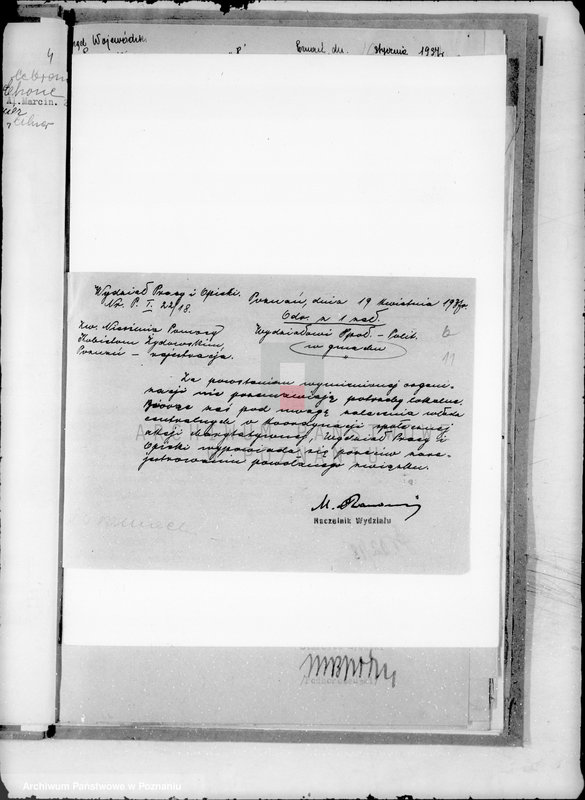 4
ząd Wojewódzk.
stycznia 1937r
Aj. Marcin.
Wydział Pracy i Opieki.
Nr. P. I 22/18.
Poznań, dnia 19 kwietnia 1937r.
Odr. z 1 zał.
Zw. Niesienia Pomocy
Kobietom Żydowskim,
Poznań – rejestracja.
Wydziałowi Społ. - Polit.
w gmachu
11
Za powstaniem wymienionej organi-
zacji nie przemawiają potrzeby lokalne.
Biorąc zaś pod uwagę zalecenia władz
centralnych o koordynacji społecznej
akcji charytatywnej, Wydział Pracy i
Opieki wypowiada się przeciw zare-
jestrowaniu powołanego związku.
M.
Naczelnik Wydziału
ARCHIWUM PAŃSTWOWE
W POZNANIU
Archiwum Państwowe w Poznaniu